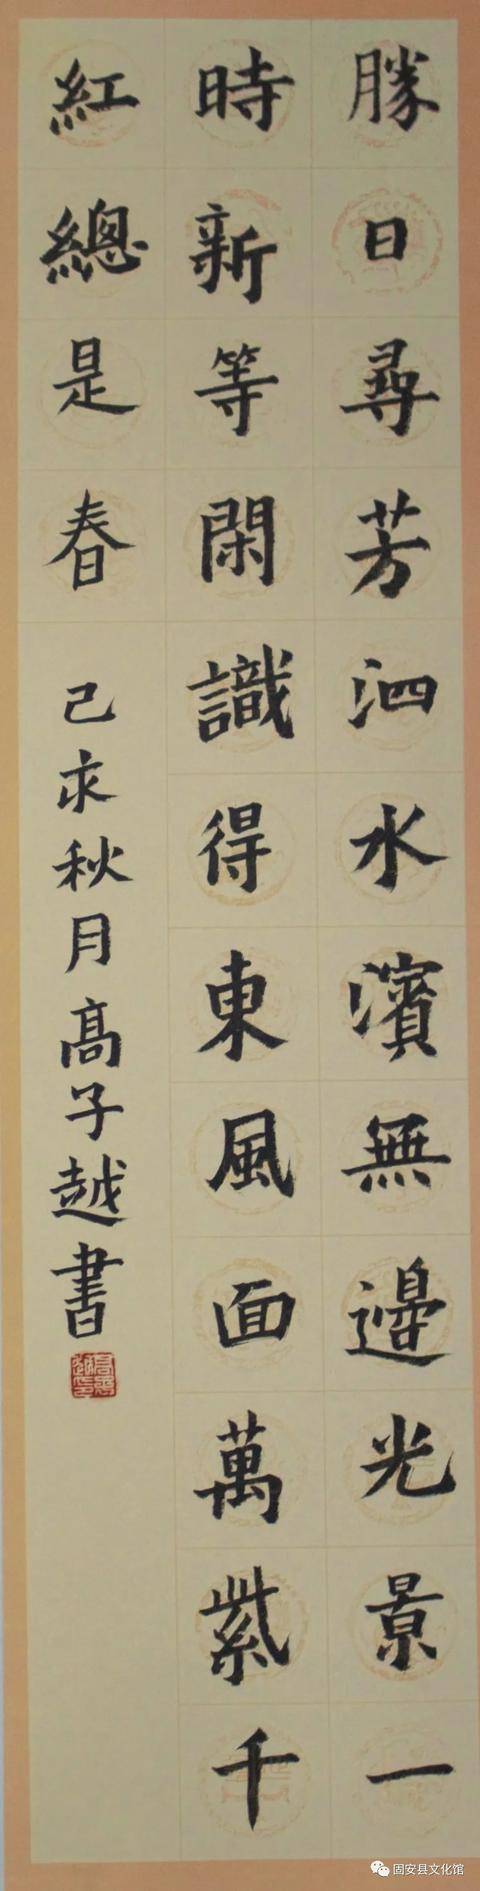 勝日尋芳泗水濱無邊光景一
時新等閑識得東風面萬紫千
紅總是春
己亥秋月高子越書
固安县文化馆